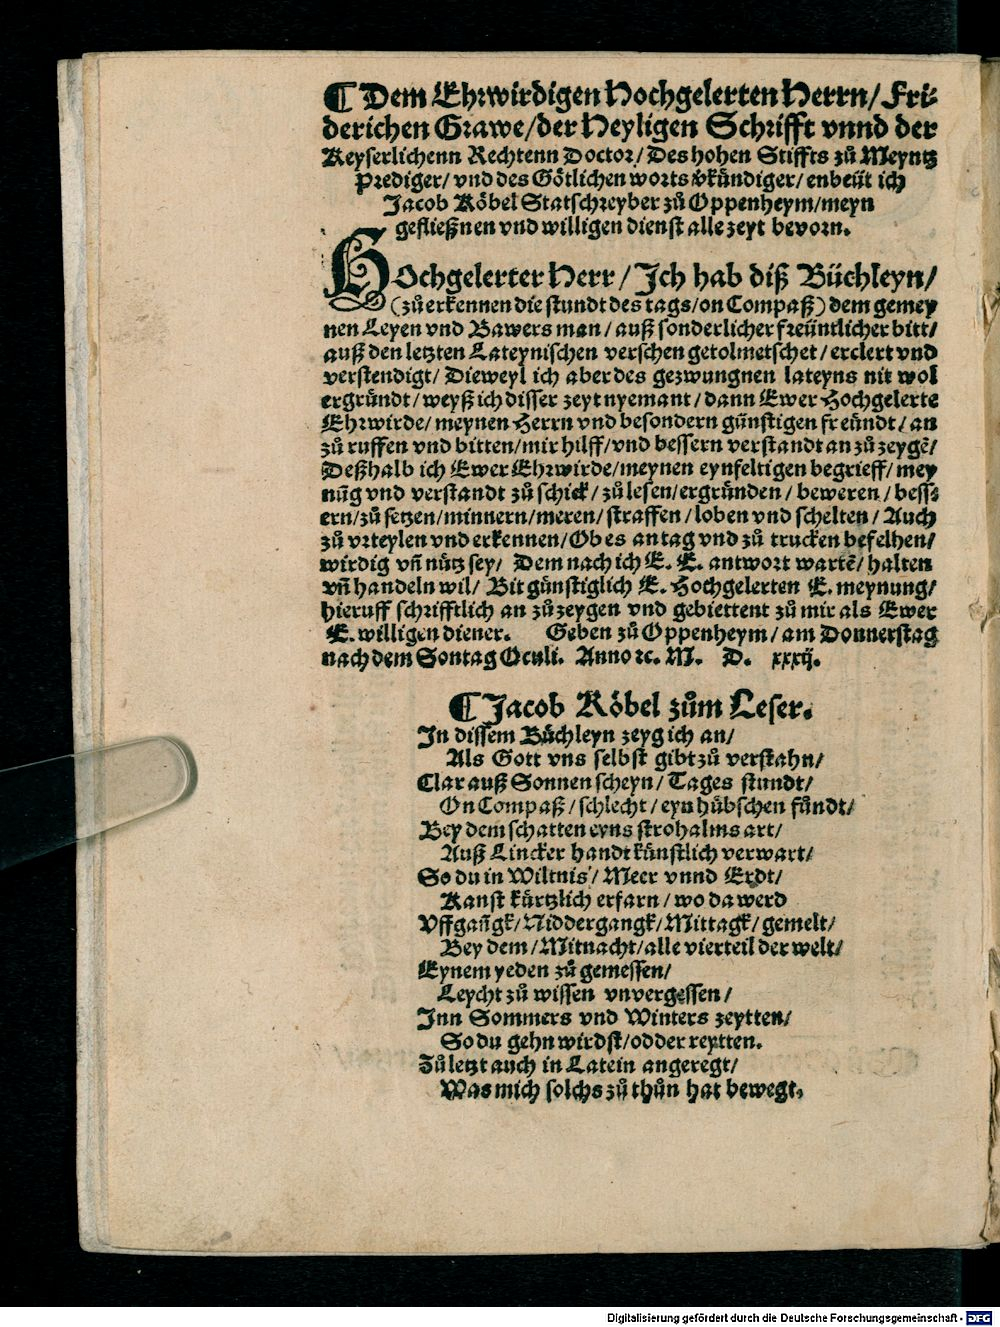 ¶ Dem Ehrwirdigen Hochgelerten Herrn/ Fri⸗
derichen Grawe/ der Heyligen Schrifft vnnd der
Keyserlichenn Rechtenn Doctor/ Des hohen Stiffts zů Meyntz
Prediger/ vnd des Götlichen worts v̊kündiger/ enbeüt ich
Jacob Köbel Statschreyber zů Oppenheym/ meyn
gefließnen vnd willigen dienst alle zeyt bevorn.
Hochgelerter Herr/ Ich hab diß Büchleyn/
(zů erkennen die stundt des tags/ on Compaß) dem gemey
nen Leyen vnd Bawers man/ auß sonderlicher freüntlicher bitt/
auß den letzten Lateynischen verschen getolmetschet/ erclert vnd
verstendigt/ Dieweyl ich aber des gezwungnen lateyns nit wol
ergründt/ weyß ich disser zeyt nyemant/ dann Ewer Hochgelerte
Ehrwirde/ meynen Herrn vnd besondern günstigen freündt/ an
zů ruffen vnd bitten/ mir hilff/ vnd bessern verstandt an zů zeygē/
Deßhalb ich Ewer Ehrwirde/ meynen eynfeltigen begrieff/ mey
nūg vnd verstandt zů schick/ zů lesen/ ergründen/ beweren/ bess⸗
ern/ zů setzen/ minnern/ meren/ straffen/ loben vnd schelten/ Auch
zů vrteylen vnd erkennen/ Ob es an tag vnd zů trucken befelhen/
wirdig vn̄ nütz sey/ Dem nach ich E. E. antwort wartē/ halten
vn̄ handeln wil/ Bit günstiglich E. Hochgelerten E. meynung/
hieruff schrifftlich an zů zeygen vnd gebiettent zů mir als Ewer
E. willigen diener. Geben zů Oppenheym/ am Donnerstag
nach dem Sontag Oculi. Anno ꝛc. M. D. xxxij.
¶ Jacob Köbel zům Leser.
In dissem Büchleyn zeyg ich an/
Als Gott vns selbst gibt zů verstahn/
Clar auß Sonnen scheyn/ Tages stundt/
On Compaß/ schlecht/ eyn hübschen fündt/
Bey dem schatten eyns strohalms art/
Auß Lincker handt künstlich verwart/
So du in Wiltnis/ Meer vnnd Erdt/
Kanst kürtzlich erfarn/ wo da werd
Vffgan̄gk/ Niddergangk/ Mittagk/ gemelt/
Bey dem/ Mitnacht/ alle vierteil der welt/
Eynem yeden zů gemessen/
Leycht zů wissen vnvergessen/
Inn Sommers vnd Winters zeytten/
So du gehn wirdst/ odder reytten.
Zů letzt auch in Latein angeregt/
Was mich solchs zů thůn hat bewegt.
Digitalisierung gefördert durch die Deutsche Forschungsgemeinschaft - DFG